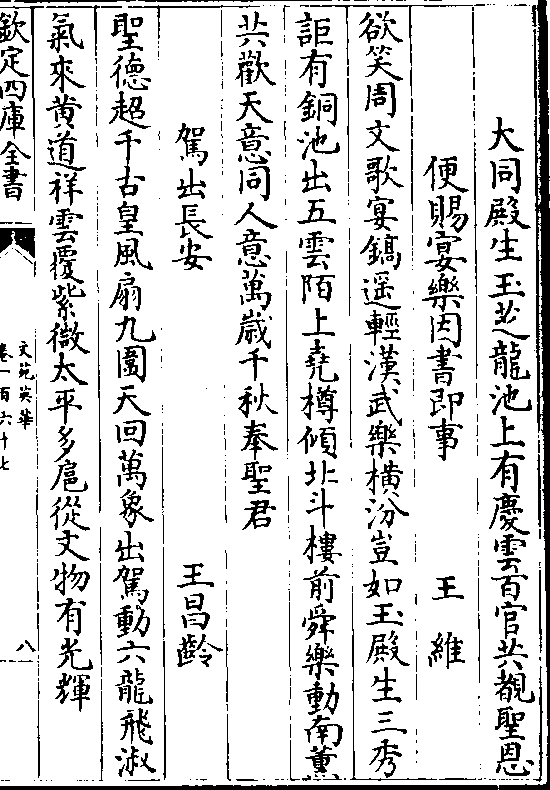 大同殿生玉芝龍池上有慶雲百官共覩聖恩
便賜宴樂因書即事 王維
欲笑周文歌宴鎬遥輕漢武樂横汾豈如玉殿生三秀
詎有銅池出五雲陌上堯樽傾北斗樓前舜樂動南薫
共歡天意同人意萬歳千秋奉聖君
駕出長安 王昌齡
聖德超千古皇風扇九圍天回萬象出駕動六龍飛淑
氣來黄道祥雲覆紫微太平多扈從文物有光輝
欽定四庫全書
文苑英華
卷一百六十七
八